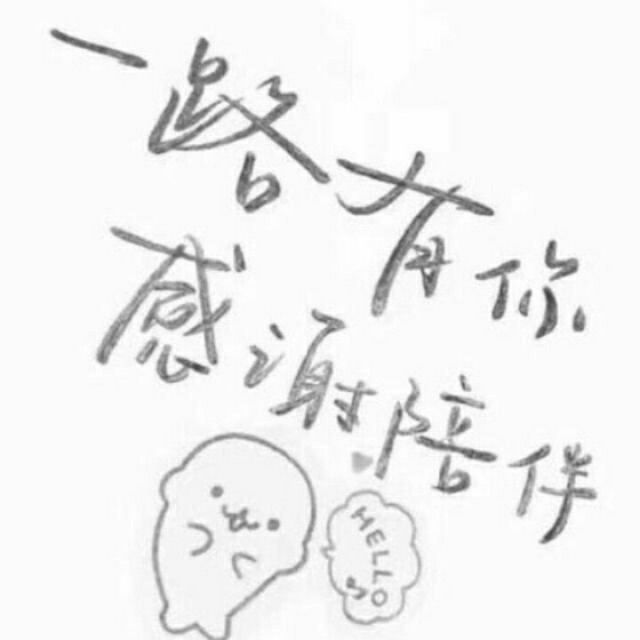 一路有你
感谢陪伴
HELLO